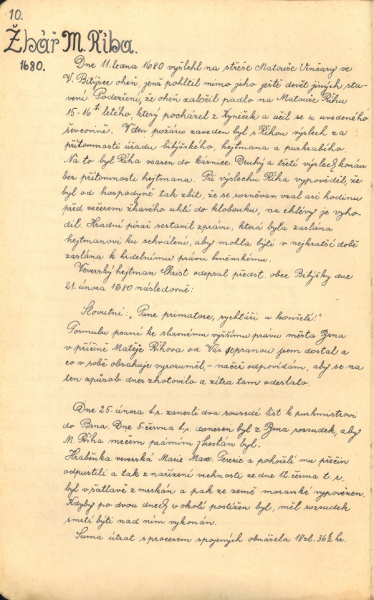 10.
Žhář M. Říha.
1680.
Dne 11. ledna 1680 vyšlehl na střeše Matouše Vinčary ve
V. Bítýšce oheň, jenž pohltil mimo jeho ještě devět jiných sta-
vení. Podezření, že oheň založil padlo na Matouše Říhu
15-16ti letého, který pocházel z Kyniček a učil se u uvedeného
ševcovině. V den požáru zaveden byl s Říhou výslech za
přítomnosti úřadu bítýšského, hejtmana a purkrabího.
Na to byl Říha vsazen do věznice. Druhý a třetí výslech konán
bez přítomnosti hejtmana. Při výslechu Říha vypověděl, že
byl od hospodyně tak zbit, že se rozněván vzal asi hodinu
před večerem žhavého uhlí do klobouku, na chlévy je vyho-
dil. Hradní písař sestavil zprávu, která byla zaslána
hejtmanovi ku schválení, aby mohla býti v nejkratší době
zaslána k hrdelnímu právu brněnskému.
Veverský hejtman odepsal předst. obce Bítýšky dne
21. února 1680 následovně:
Slovutní: „Pane primatore, rychtáři a konšelé!"
Formulu psaní ke slavnému vyššímu právu města Brna
v příčině Matěje Říhova od Vás sepsanou jsem dostal a
co v sobě obsahuje vyrozuměl, - načež odpovídám, aby se na
ten způsob dnes zhotovilo a zítra tam odeslalo.
Dne 25. února t.r. zanesli dva sousedé list k purkmistrovi
do Brna. Dne 5. června t.r. donesen byl z Brna rozsudek, aby
M. Říha mečem právním ztrestán byl.
Hraběnka veverská Marie Max. Terezie a pokojelí mu přečin
odpustili a tak z nařízení vrchnosti ze dne 12. června t. r.
byl v šatlavě zmrskán a pak ze země moravské vypovězen.
Kdyby po dvou dnech v okolí postižen byl, měl rozsudek
smrti býti nad ním vykonán.
Suma útrat s procesem spojených obnášela 18 zl. 36½ kr.